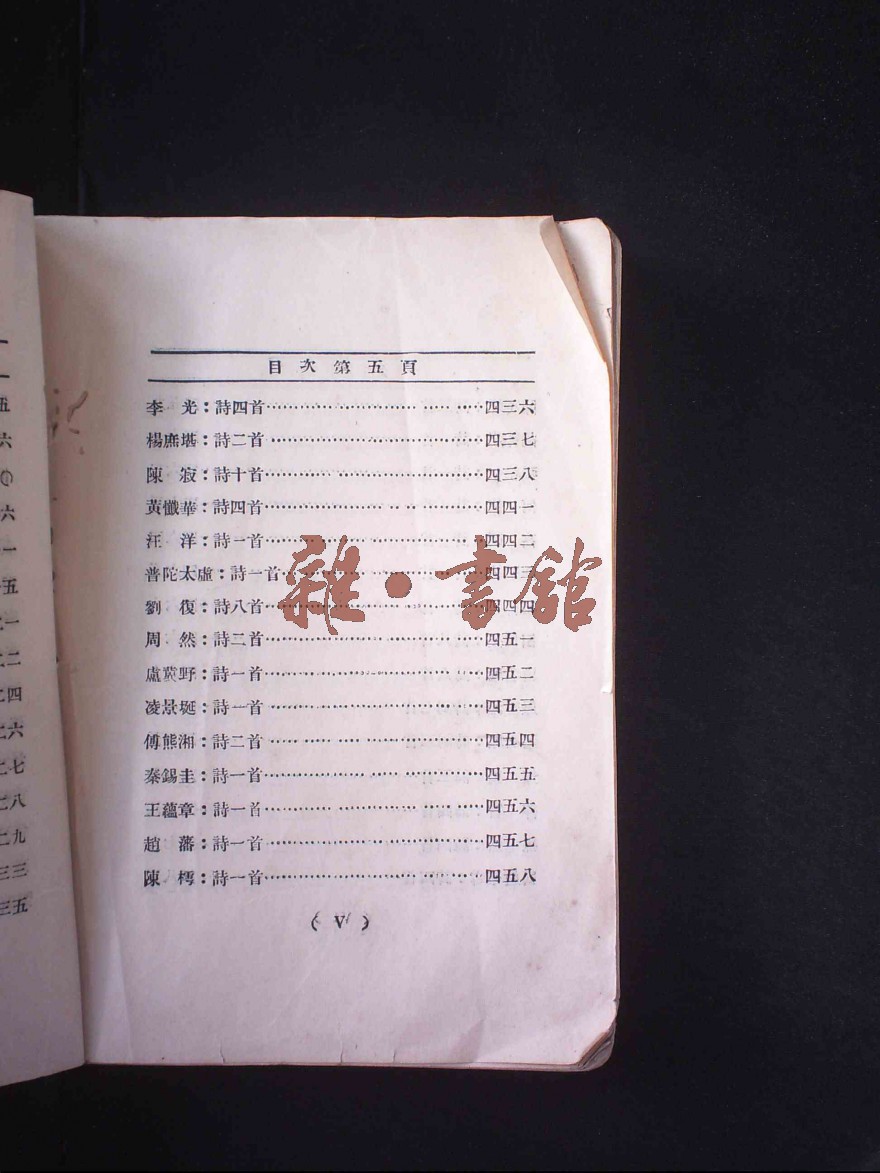 目次第五頁
李　光：詩四首……四三六
楊庶堪：詩二首……四三七
陳　寂：詩十首……四三八
黃懺華：詩四首……四四一
汪　洋：詩一首……四四二
普陀太虛：詩一首……四四三
劉　復：詩八首……四四四
周　然：詩二首……四五一
盧冀野：詩一首……四五二
凌景埏：詩一首……四五三
傅熊湘：詩二首……四五四
秦錫圭：詩一首……四五五
王蘊章：詩一首……四五六
趙　藩：詩一首……四五七
陳　樗：詩一首……四五八
( V )
雜·書館
五
六
六
一
五
一
二
四
六
七
八
九
三三
三五